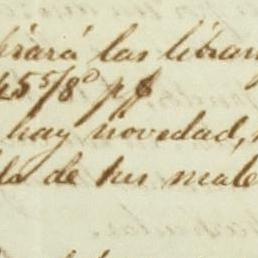 brará las libran
45 5/8 p$
hay novedad,
de sus male